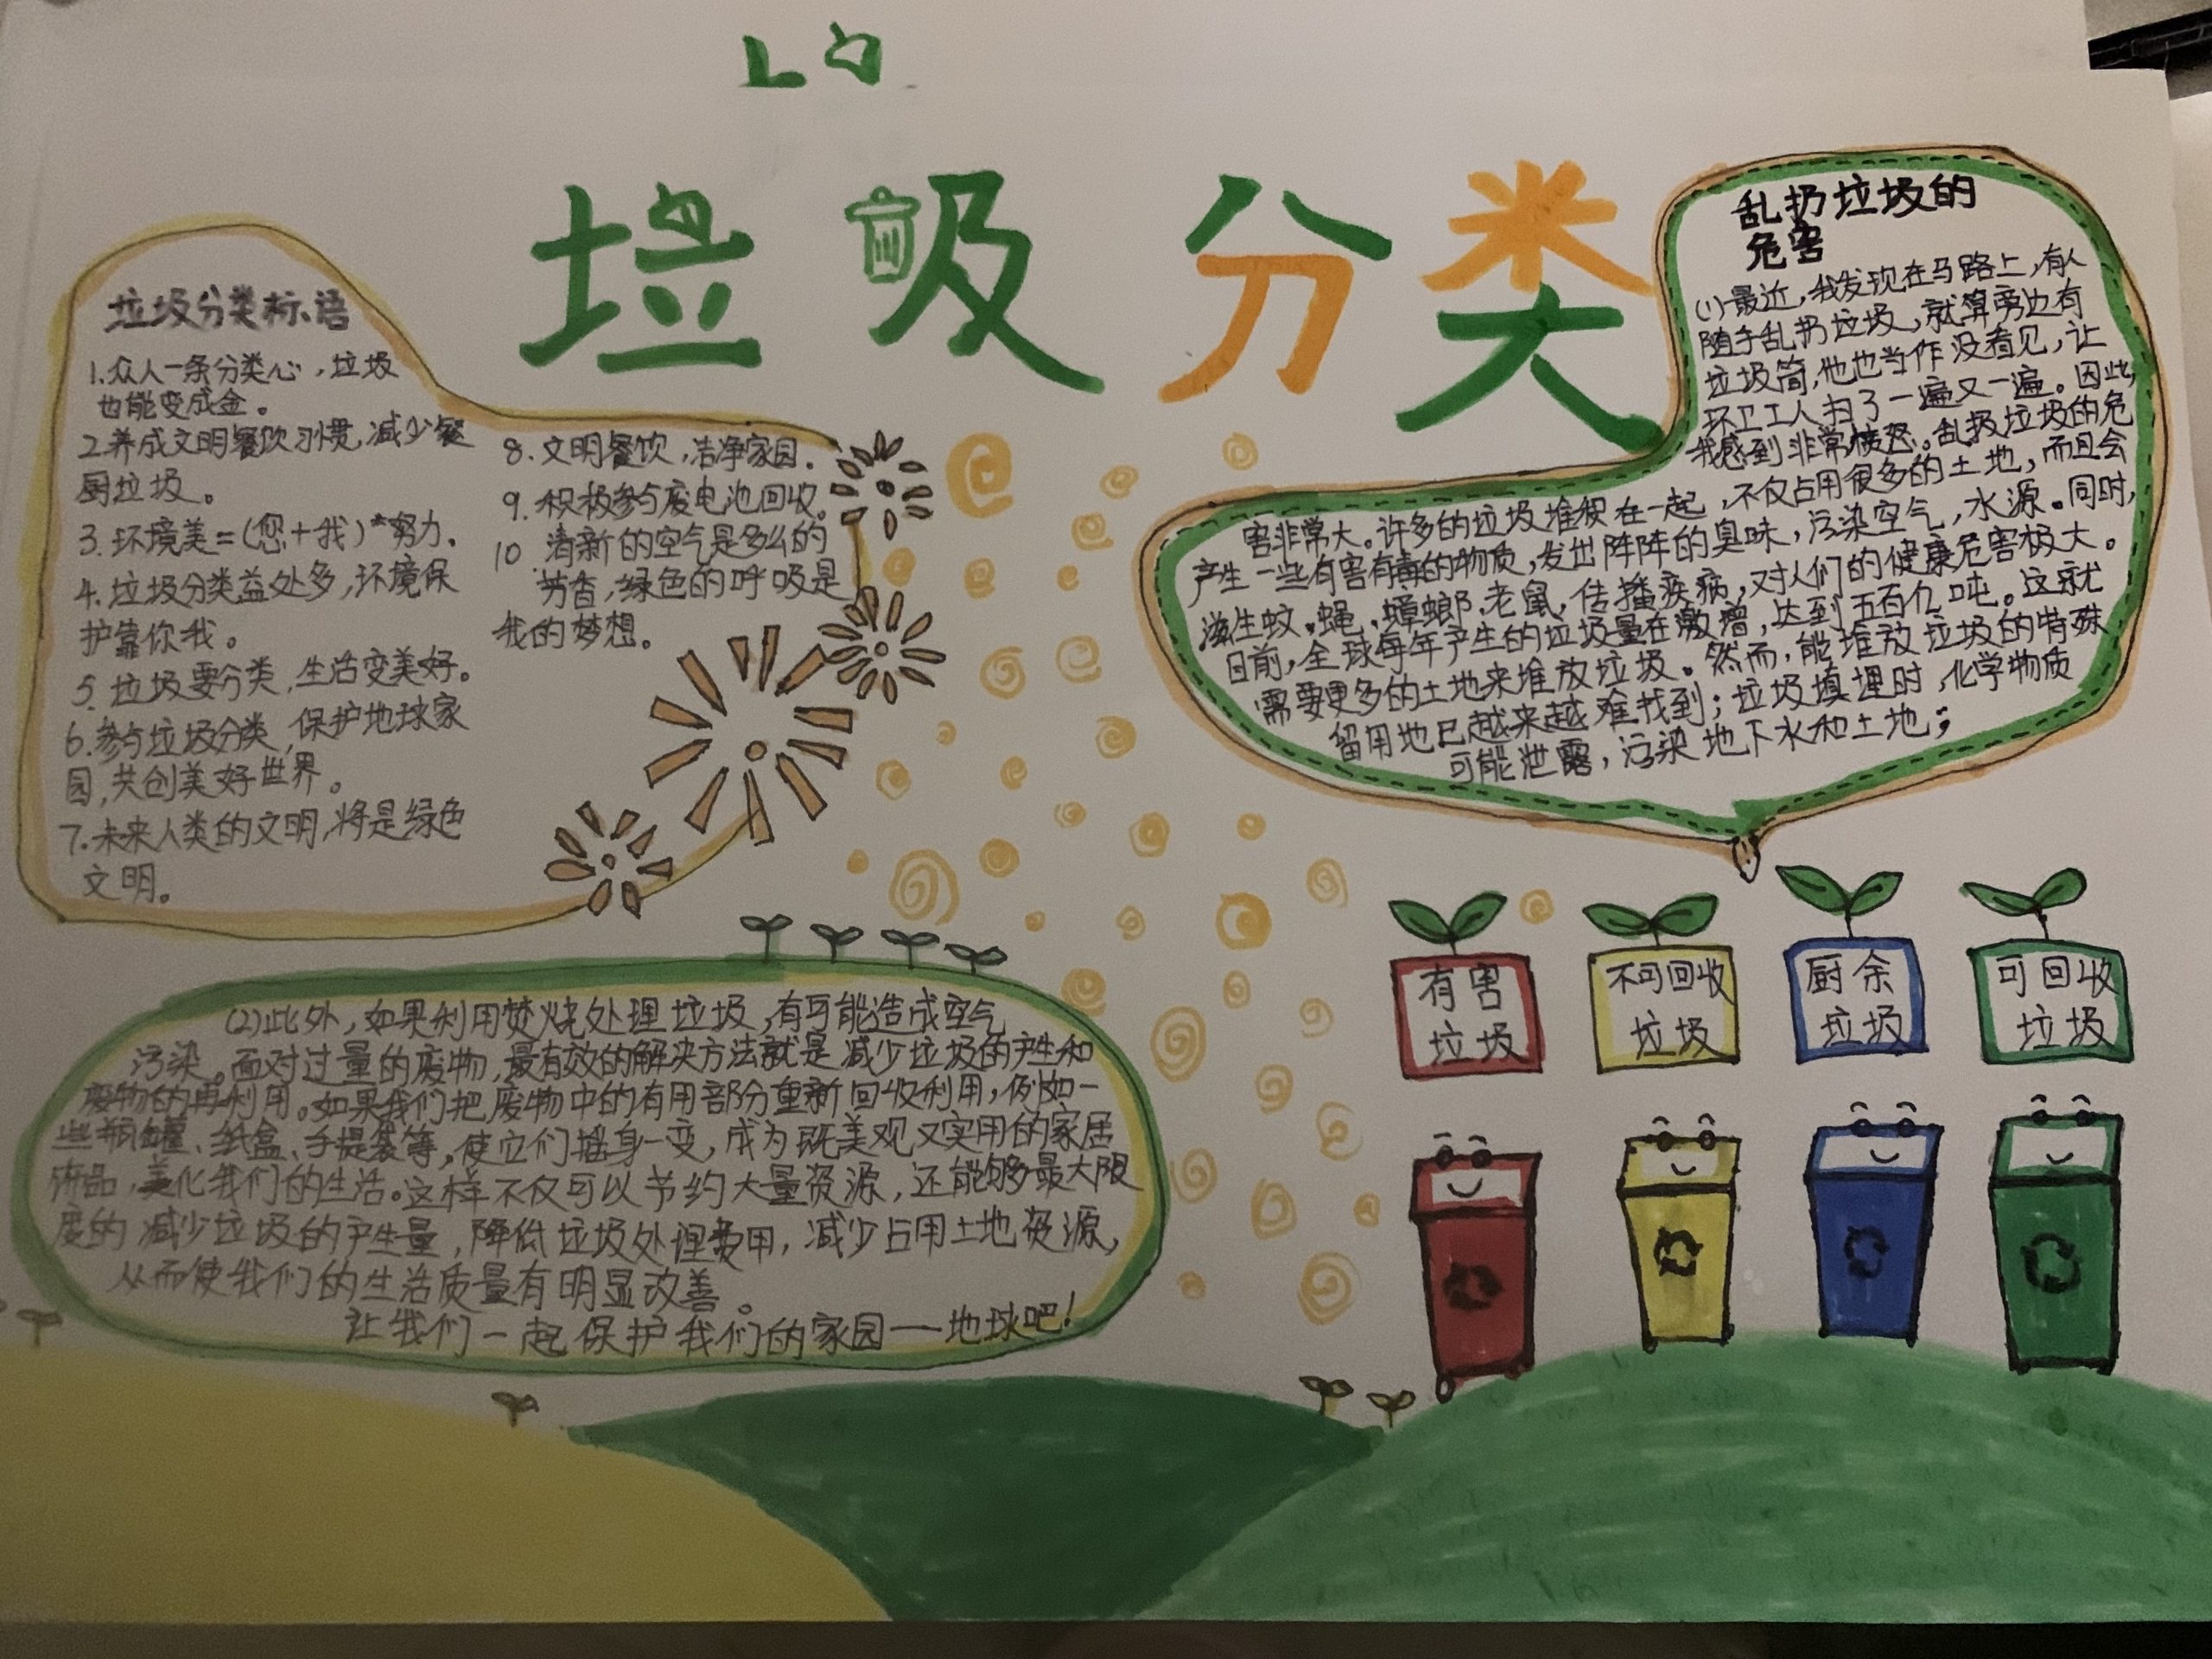 垃圾分类
垃圾分类标语
1.众人一条分类心，垃圾
也能变成金。
2.养成文明餐饮习惯，减少餐
厨垃圾。
3.环境美=(您+我)*努力.
4.垃圾分类益处多，环境保
护靠你我。
5.垃圾要分类，生活变美好。
6.参与垃圾分类，保护地球家
园，共创美好世界。
7.未来人类的文明，将是绿色
文明。
8.文明餐饮，洁净家园.
9.积极参与废电池回收。
10.清新的空气是多么的
芳香，绿色的呼吸是
我的梦想。
乱扔垃圾的
危害
(1)最近，我发现在马路上，有人
随手乱扔垃圾，就算旁边有
垃圾筒，他也当作没看见，让
环卫工人扫了一遍又一遍。因此，
我感到非常愤怒。乱扔垃圾的危
害非常大。许多的垃圾堆积在一起，不仅占用很多的土地，而且会
产生一些有害有毒的物质，发出阵阵的臭味，污染空气，水源。同时，
滋生蚊、蝇、蟑螂、老鼠，传播疾病，对人们的健康危害极大。
目前，全球每年产生的垃圾量在激增，达到五百亿吨。这就
需要更多的土地来堆放垃圾。然而，能堆放垃圾的特殊
留用地已越来越难找到；垃圾填埋时，化学物质
可能泄露，污染地下水和土地；
(2)此外，如果利用焚烧处理垃圾，有可能造成空气
污染。面对过量的废物，最有效的解决方法就是减少垃圾的产生和
废物的再利用。如果我们把废物中的有用部分重新回收利用，例如一
些瓶罐、纸盒、手提袋等，使它们摇身一变，成为既美观又实用的家居
饰品，美化我们的生活。这样不仅可以节约大量资源，还能够最大限
度的减少垃圾的产生量，降低垃圾处理费用，减少占用土地资源，
从而使我们的生活质量有明显改善。
让我们一起保护我们的家园——地球吧！
有害
垃圾
不可回收
垃圾
厨余
垃圾
可回收
垃圾